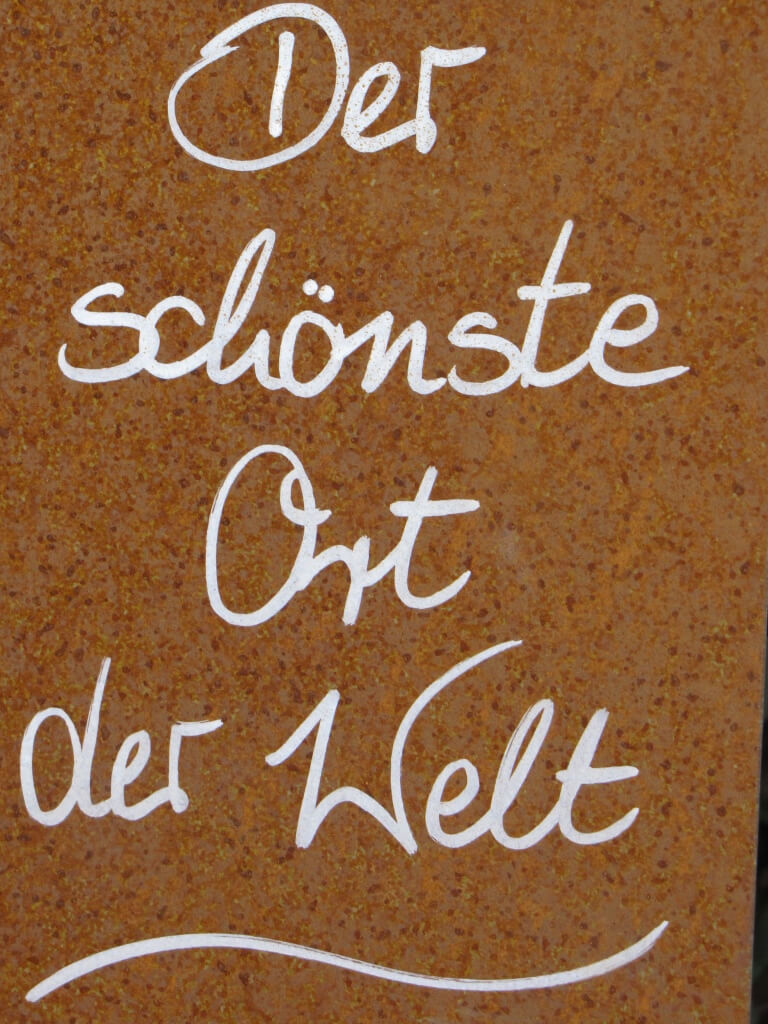 Der
schönste
Ort
der Welt